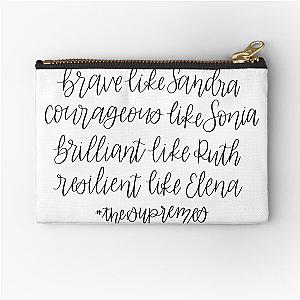 brave like Sandra
courageous like Sonia
brilliant like Ruth
resilient like Elena
#thesupremes